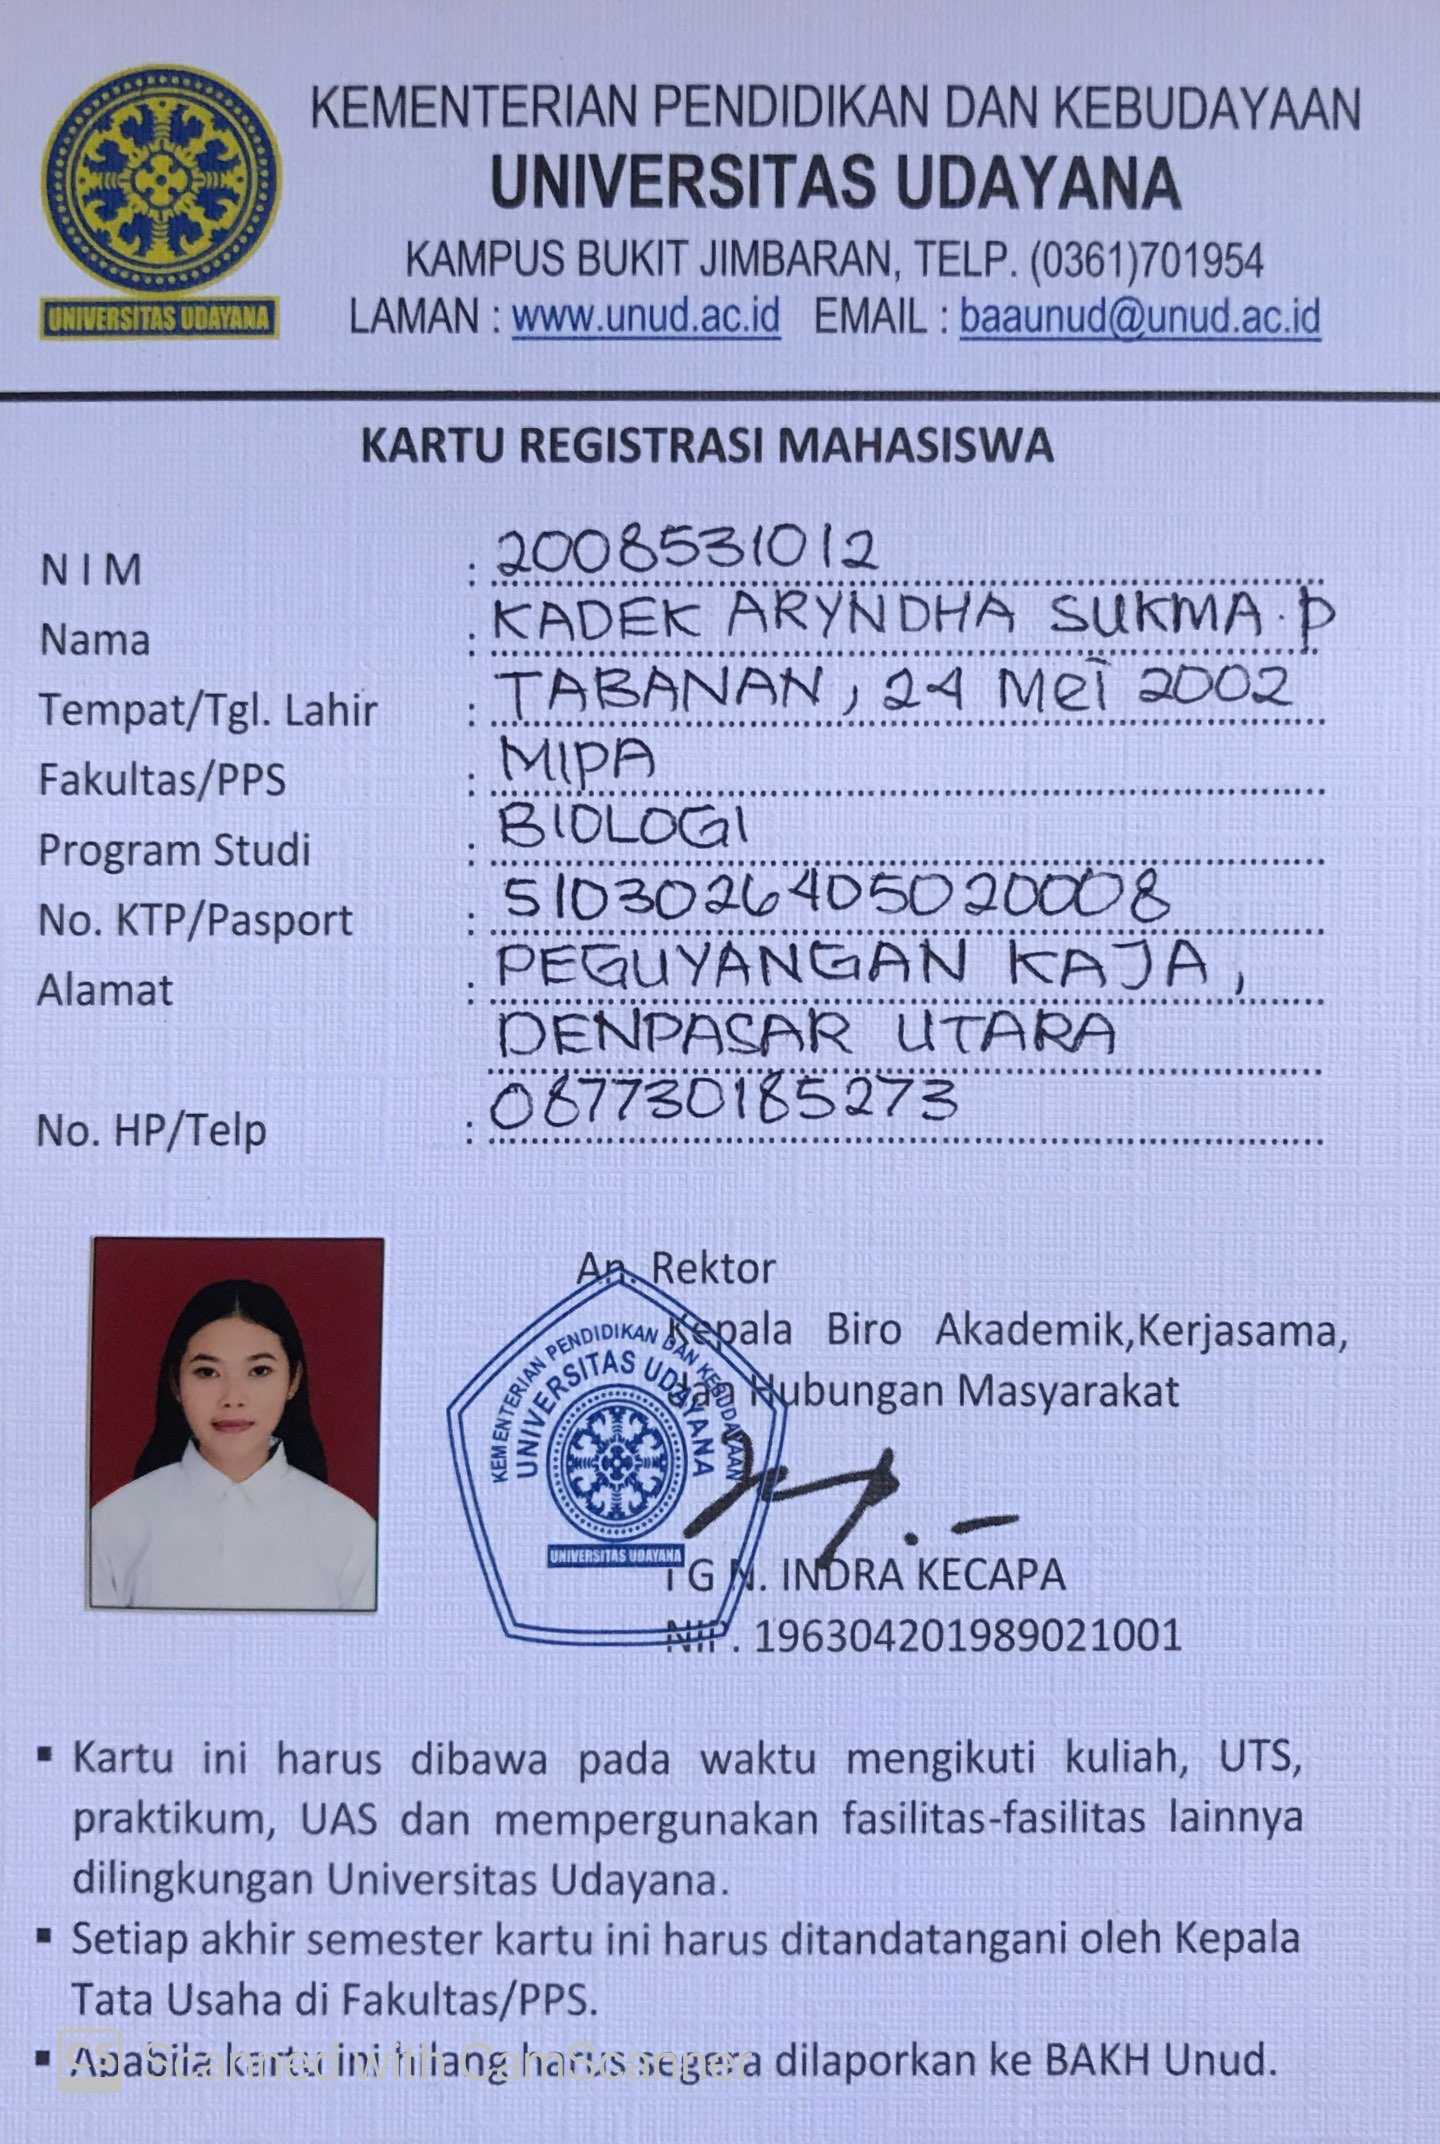 KEMENTERIAN PENDIDIKAN DAN KEBUDAYAAN
UNIVERSITAS UDAYANA
KAMPUS BUKIT JIMBARAN, TELP. (0361)701954
LAMAN : www.unud.ac.id EMAIL : baaunud@unud.ac.id
UNIVERSITAS UDAYANA
KARTU REGISTRASI MAHASISWA
N I M : 2008531012
Nama : KADEK ARYNDHA SUKMA. P
Tempat/Tgl. Lahir : TABANAN, 24 Mei 2002
Fakultas/PPS : MIPA
Program Studi : BIOLOGI
No. KTP/Pasport : 5103026405020008
Alamat : PEGUYANGAN KAJA,
DENPASAR UTARA
No. HP/Telp : 087730185273
An. Rektor
Kepala Biro Akademik,Kerjasama,
dan Hubungan Masyarakat
KEMENTERIAN PENDIDIKAN DAN KEBUDAYAAN
UNIVERSITAS UDAYANA
UNIVERSITAS UDAYANA
I G N. INDRA KECAPA
NIP. 196304201989021001
▪ Kartu ini harus dibawa pada waktu mengikuti kuliah, UTS,
praktikum, UAS dan mempergunakan fasilitas-fasilitas lainnya
dilingkungan Universitas Udayana.
▪ Setiap akhir semester kartu ini harus ditandatangani oleh Kepala
Tata Usaha di Fakultas/PPS.
▪ Apabila kartu ini hilang harus segera dilaporkan ke BAKH Unud.
CS Scanned with CamScanner